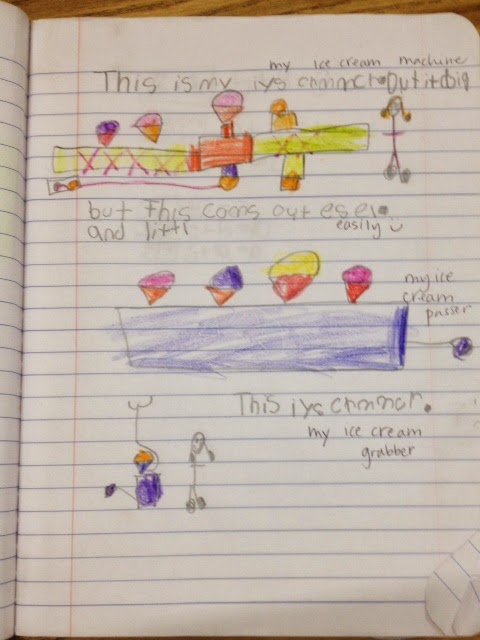 my ice cream machine
This is my iys crmmcr. But it big
but This coms out esel.
and littl easily
my ice
cream
passer
This iys crmmcr.
my ice cream
grabber